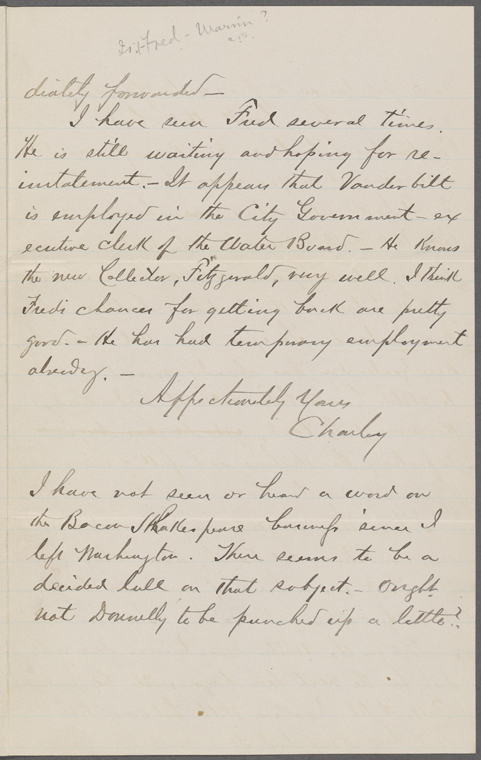 Fred - Marvin?
diately forwarded —
I have seen Fred several times.
He is still waiting and hoping for re-
instatement. — It appears that Vanderbilt
is employed in the City Government — ex
ecutive clerk of the Water Board. — He knows
the new Collector, Fitzgerald, very well. I think
Freds chances for getting back are pretty
good. — He has had temporary employment
already. —
Affectionately Yours
Charley
I have not seen or heard a word on
the Bacon Shakespeare business since I
left Washington. There seems to be a
decided lull on that subject. — Ought
not Donnelly to be punched up a little?